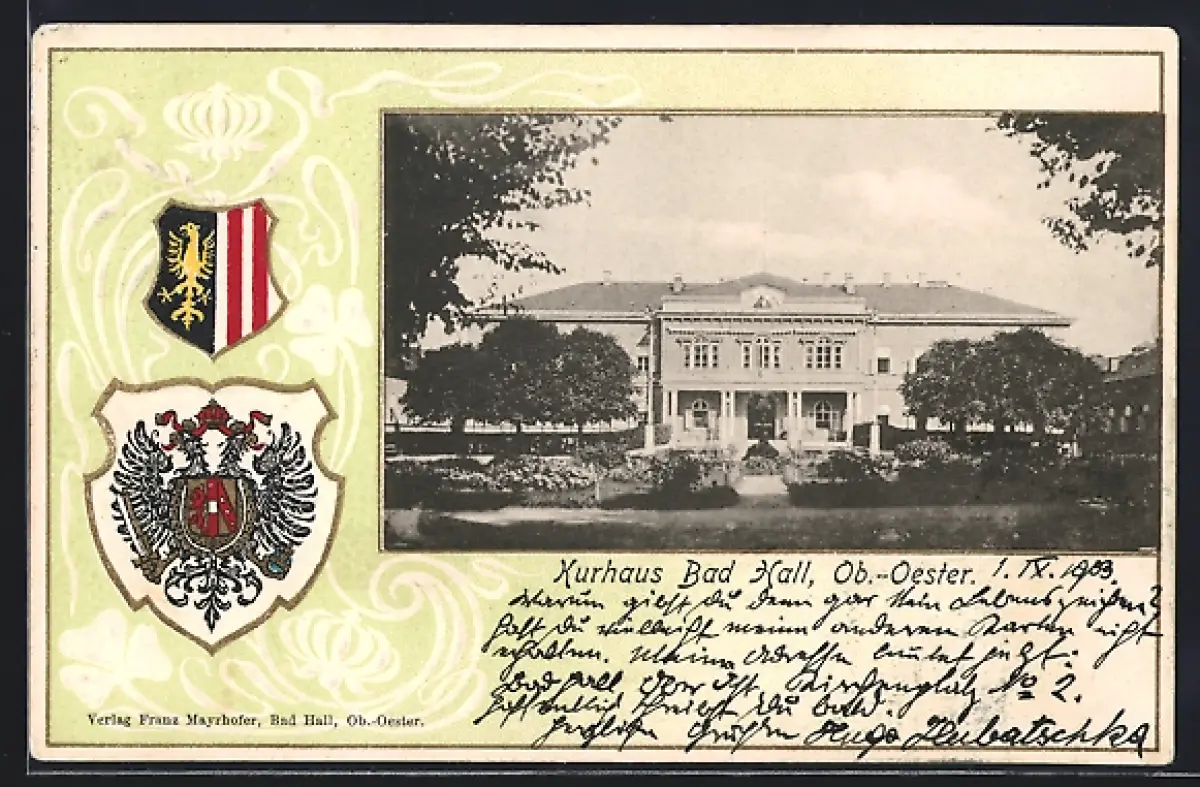 Kurhaus Bad Hall, Ob.-Oester. 1. IX. 1903.
Warum gibst du denn gar kein Lebenszeichen?
hast du vielleicht meine anderen Karten nicht
erhalten. Meine Adresse lautet jetzt:
Bad Hall Ober Öst. Kirchenplatz No 2.
Hoffentlich schreibst du bald.
Herzliche Grüßen Hugo Hubatschka
Verlag Franz Mayrhofer, Bad Hall, Ob.-Oester.